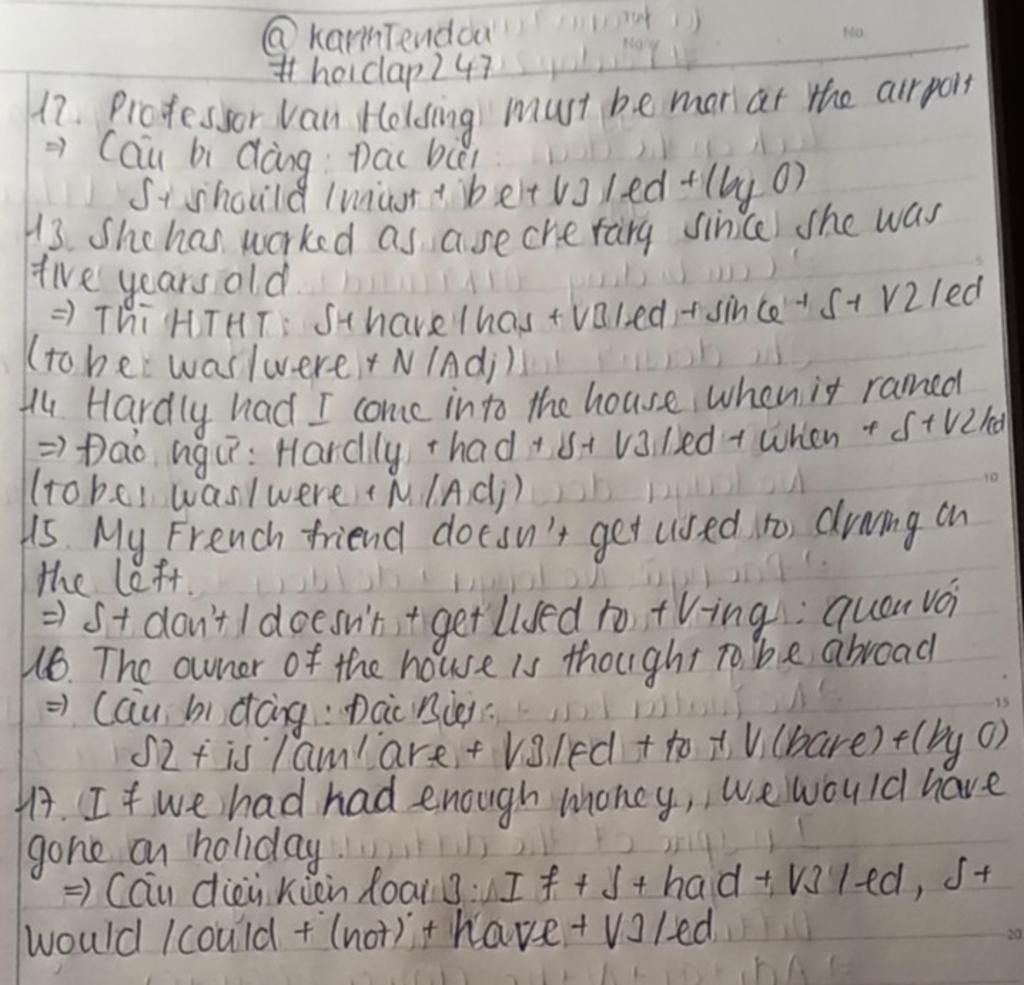 @ KarmTendou
# hoidap247
12. Professor Van Helsing must be met at the airport
⇒ Câu bị động: Đặc biệt:
S + should / must + be + V3/ed + (by O)
13. She has worked as a secretary since she was
five years old
⇒ Thì HTHT: S + have / has + V3/ed + since + S + V2/ed
(to be: was/were + N/Adj)
14. Hardly had I come into the house when it rained
⇒ Đảo ngữ: Hardly + had + S + V3/ed + when + S + V2/ed
(to be: was/were + N/Adj)
15. My French friend doesn't get used to driving on
the left.
⇒ S + don't / doesn't + get used to + V-ing: quen với
16. The owner of the house is thought to be abroad
⇒ Câu bị động: Đặc Biệt:
S2 + is / am / are + V3/ed + to + V(bare) + (by O)
17. If we had had enough money, we would have
gone on holiday.
⇒ Câu điều kiện loại 3: If + S + had + V3/ed, S +
would / could + (not) + have + V3/ed